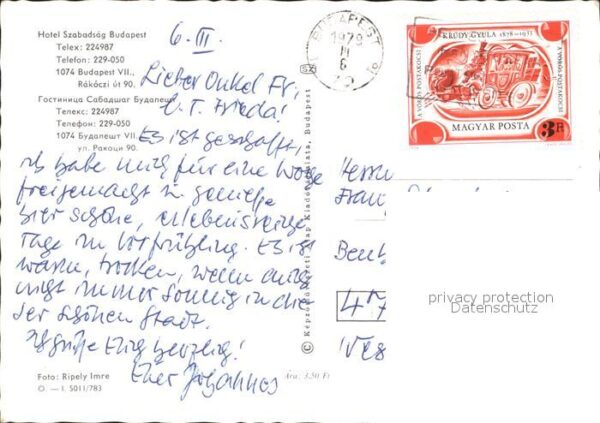 Hotel Szabadság Budapest
Telex: 224987
Telefon: 229-050
1074 Budapest VII.,
Rákóczi út 90.
Гостиница Сабадшаг Будапешт
Телекс: 224987
Телефон: 229-050
1074 Будапешт VII.
ул. Ракоци 90.
6. III.
Lieber Onkel Fr.,
u. T. Frieda!
Es ist geschafft,
ich habe mich für eine Woche
freigemacht u. genieße
hier schöne, erlebnisreiche
Tage im Vorfrühling. Es ist
warm, trocken, wenn auch
nicht immer sonnig in dieser
der schönen Stadt.
Ich grüße Euch herzlich!
Euer Johannes
Foto: Ripely Imre
O. — I. 5011/783
Ára: 3,50 Ft
© Képzőművészeti Alap Kiadóvállalata, Budapest
BUDAPEST
1979
III
6
KRÚDY GYULA 1878-1933
A VÖRÖS POSTAKOCSI
A VÖRÖS POSTAKOCSI
MAGYAR POSTA
3Ft
Herrn
Frau
privacy protection
Datenschutz